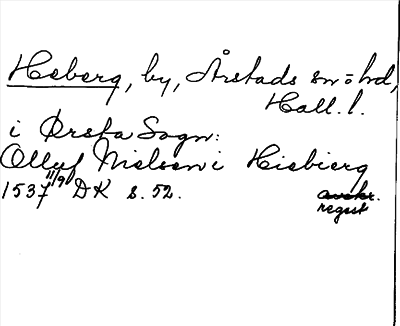 Heberg, by, Årstads sn o hd,
Hall. l.
i Ørsta Sogn:
Olluf Nielsen i Hiebierg
1537 11/9 DK s. 52.
avskr.
regist